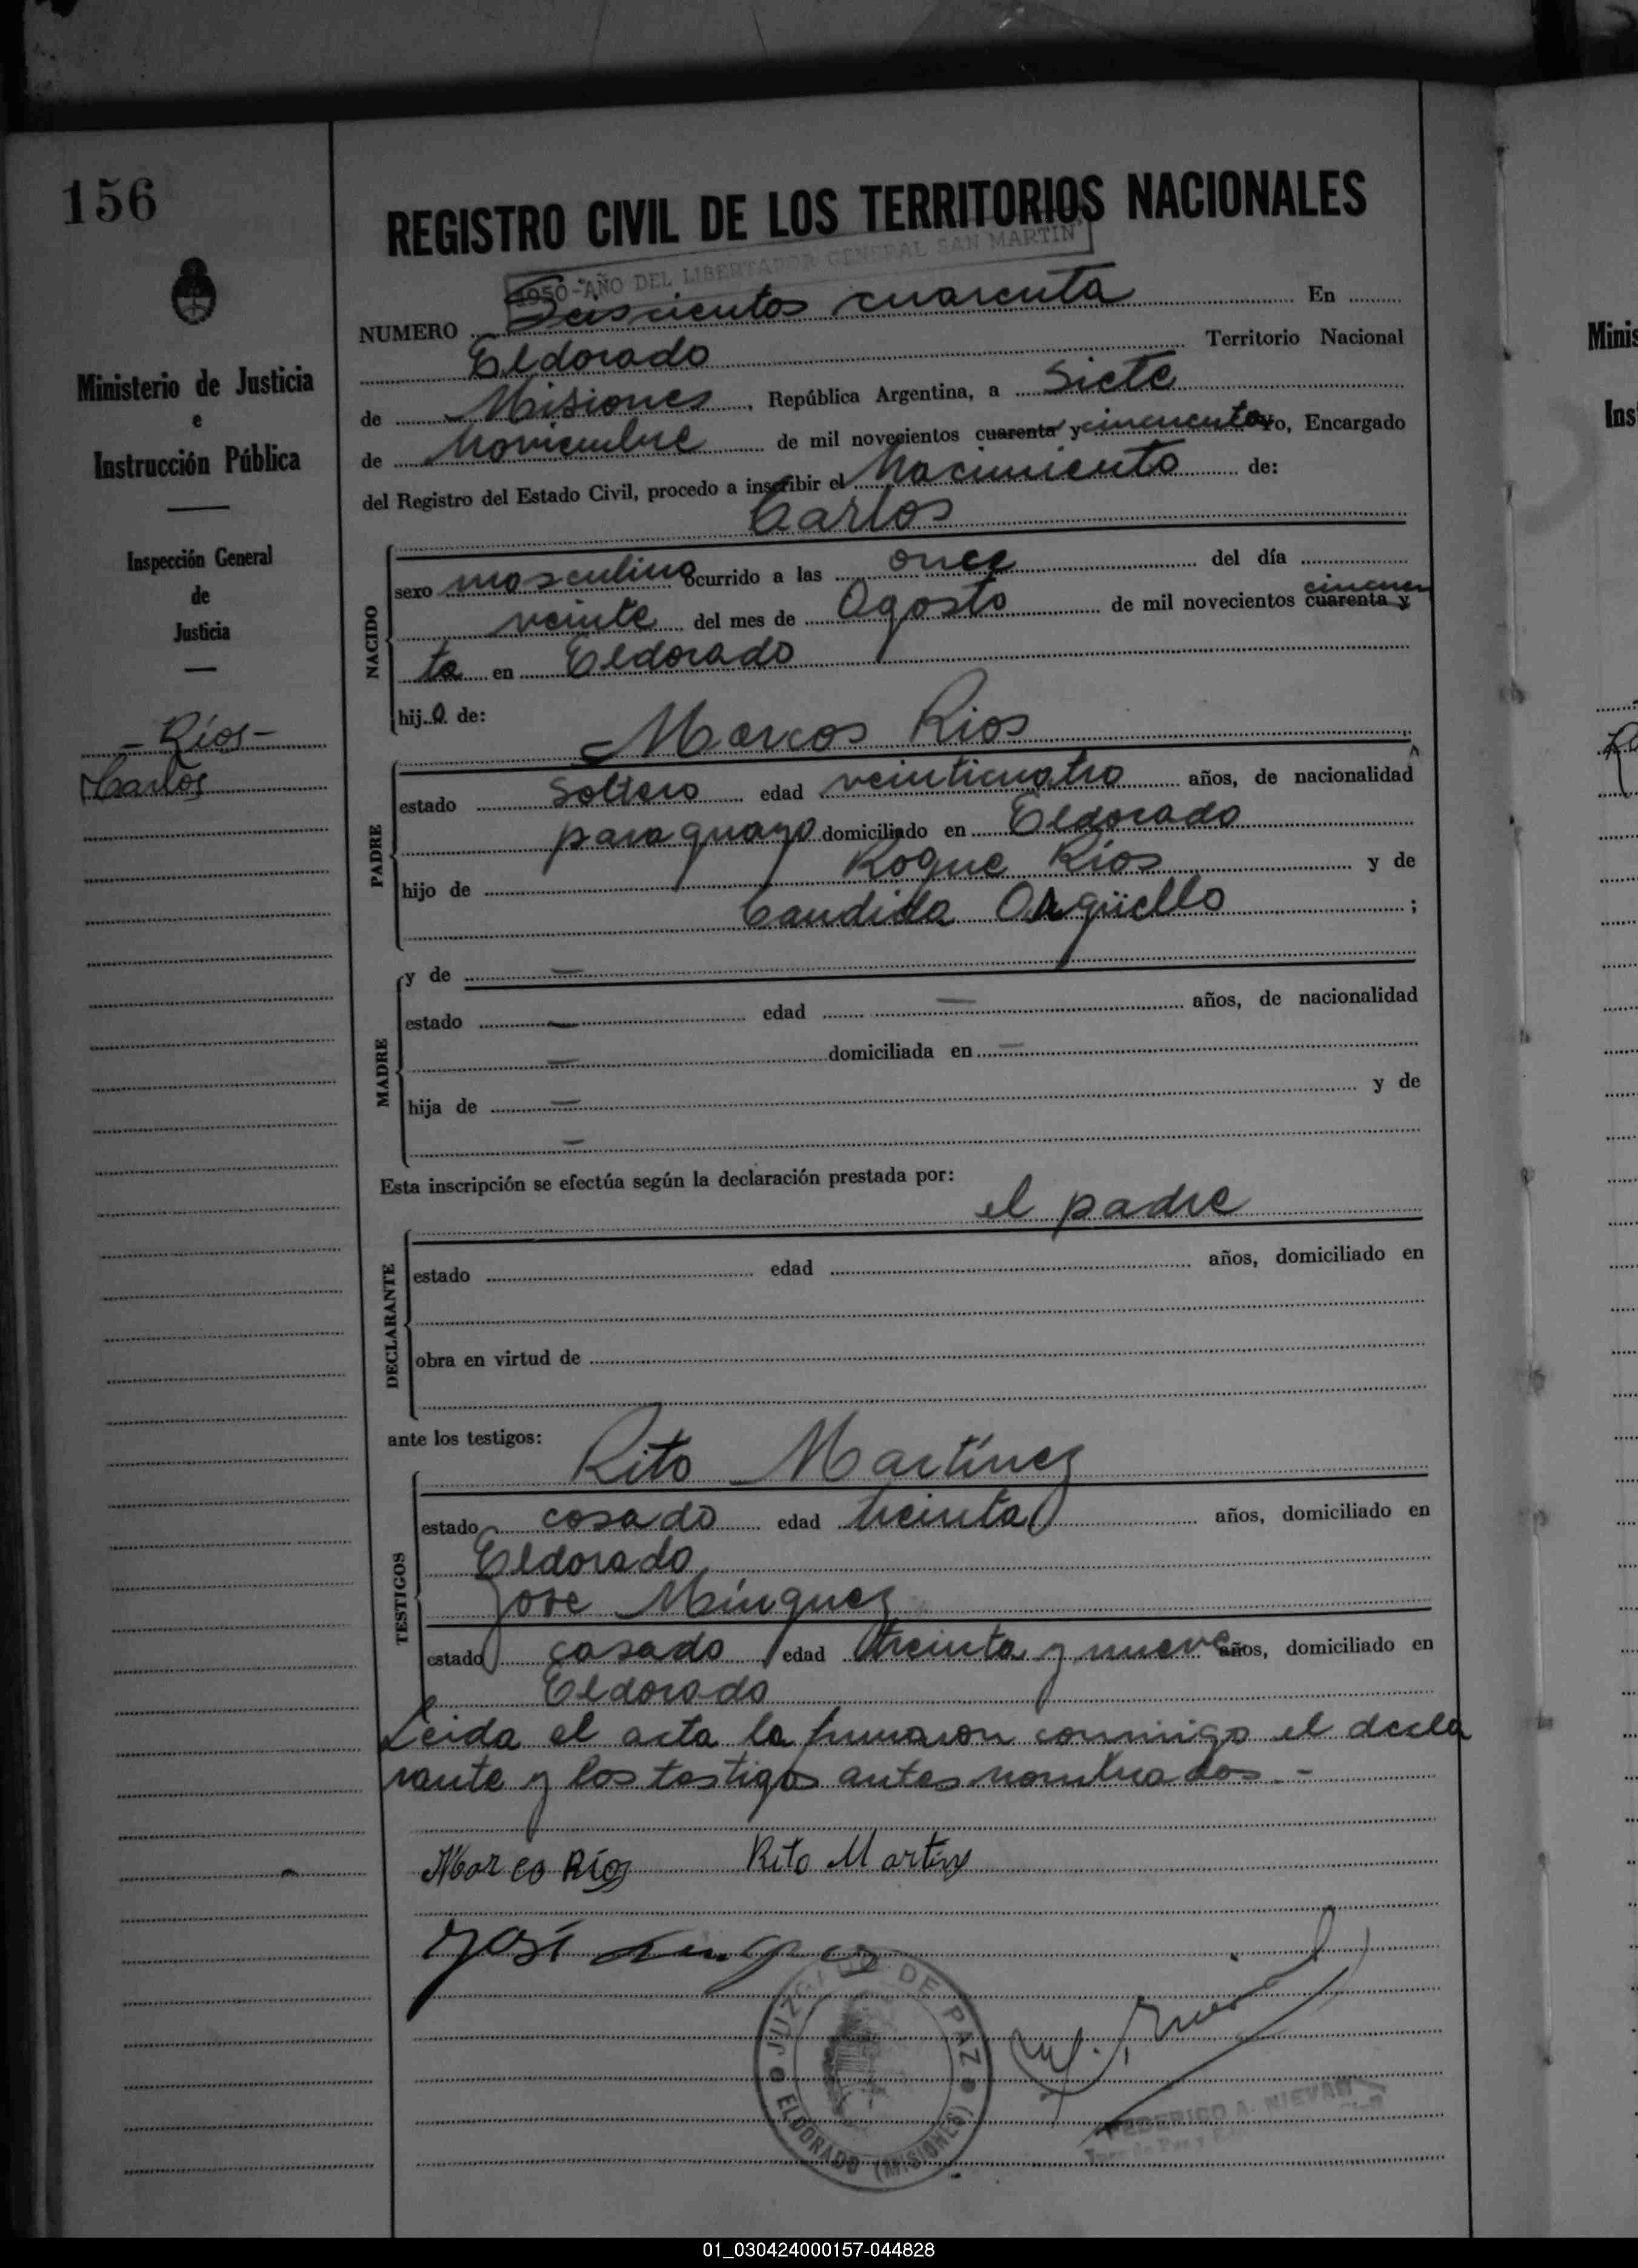 156
REGISTRO CIVIL DE LOS TERRITORIOS NACIONALES
1950-AÑO DEL LIBERTADOR GENERAL SAN MARTIN
Ministerio de Justicia
e
Instrucción Pública
Inspección General
de
Justicia
- Ríos -
Carlos
NUMERO Seiscientos cuarenta En
Eldorado Territorio Nacional
de Misiones, República Argentina, a Siete
de Noviembre de mil novecientos cuarenta y cincuenta Yo, Encargado
del Registro del Estado Civil, procedo a inscribir el Nacimiento de:
Carlos
NACIDO
sexo masculino ocurrido a las once del día
veinte del mes de Agosto de mil novecientos cuarenta y cincuen
ta en Eldorado
hijo de:
Marcos Rios
PADRE
estado Soltero edad veinticuatro años, de nacionalidad
paraguayo domiciliado en Eldorado
hijo de Roque Rios y de
Candida Argüello;
MADRE
y de —
estado — edad — años, de nacionalidad
— domiciliada en —
hija de — y de
—
Esta inscripción se efectúa según la declaración prestada por:
el padre
DECLARANTE
estado edad años, domiciliado en
obra en virtud de
ante los testigos:
Rito Martínez
TESTIGOS
estado casado edad treinta años, domiciliado en
Eldorado
Jose Mínguez
estado casado edad treinta y nueve años, domiciliado en
Eldorado
Leida el acta la firmaron conmigo el decla
rante y los testigos antes nombrados.-
Marco Ríos Rito Martinz
José
JUZGADO DE PAZ
ELDORADO (MISIONES)
FEDERICO A. NIEVAS
01_030424000157-044828